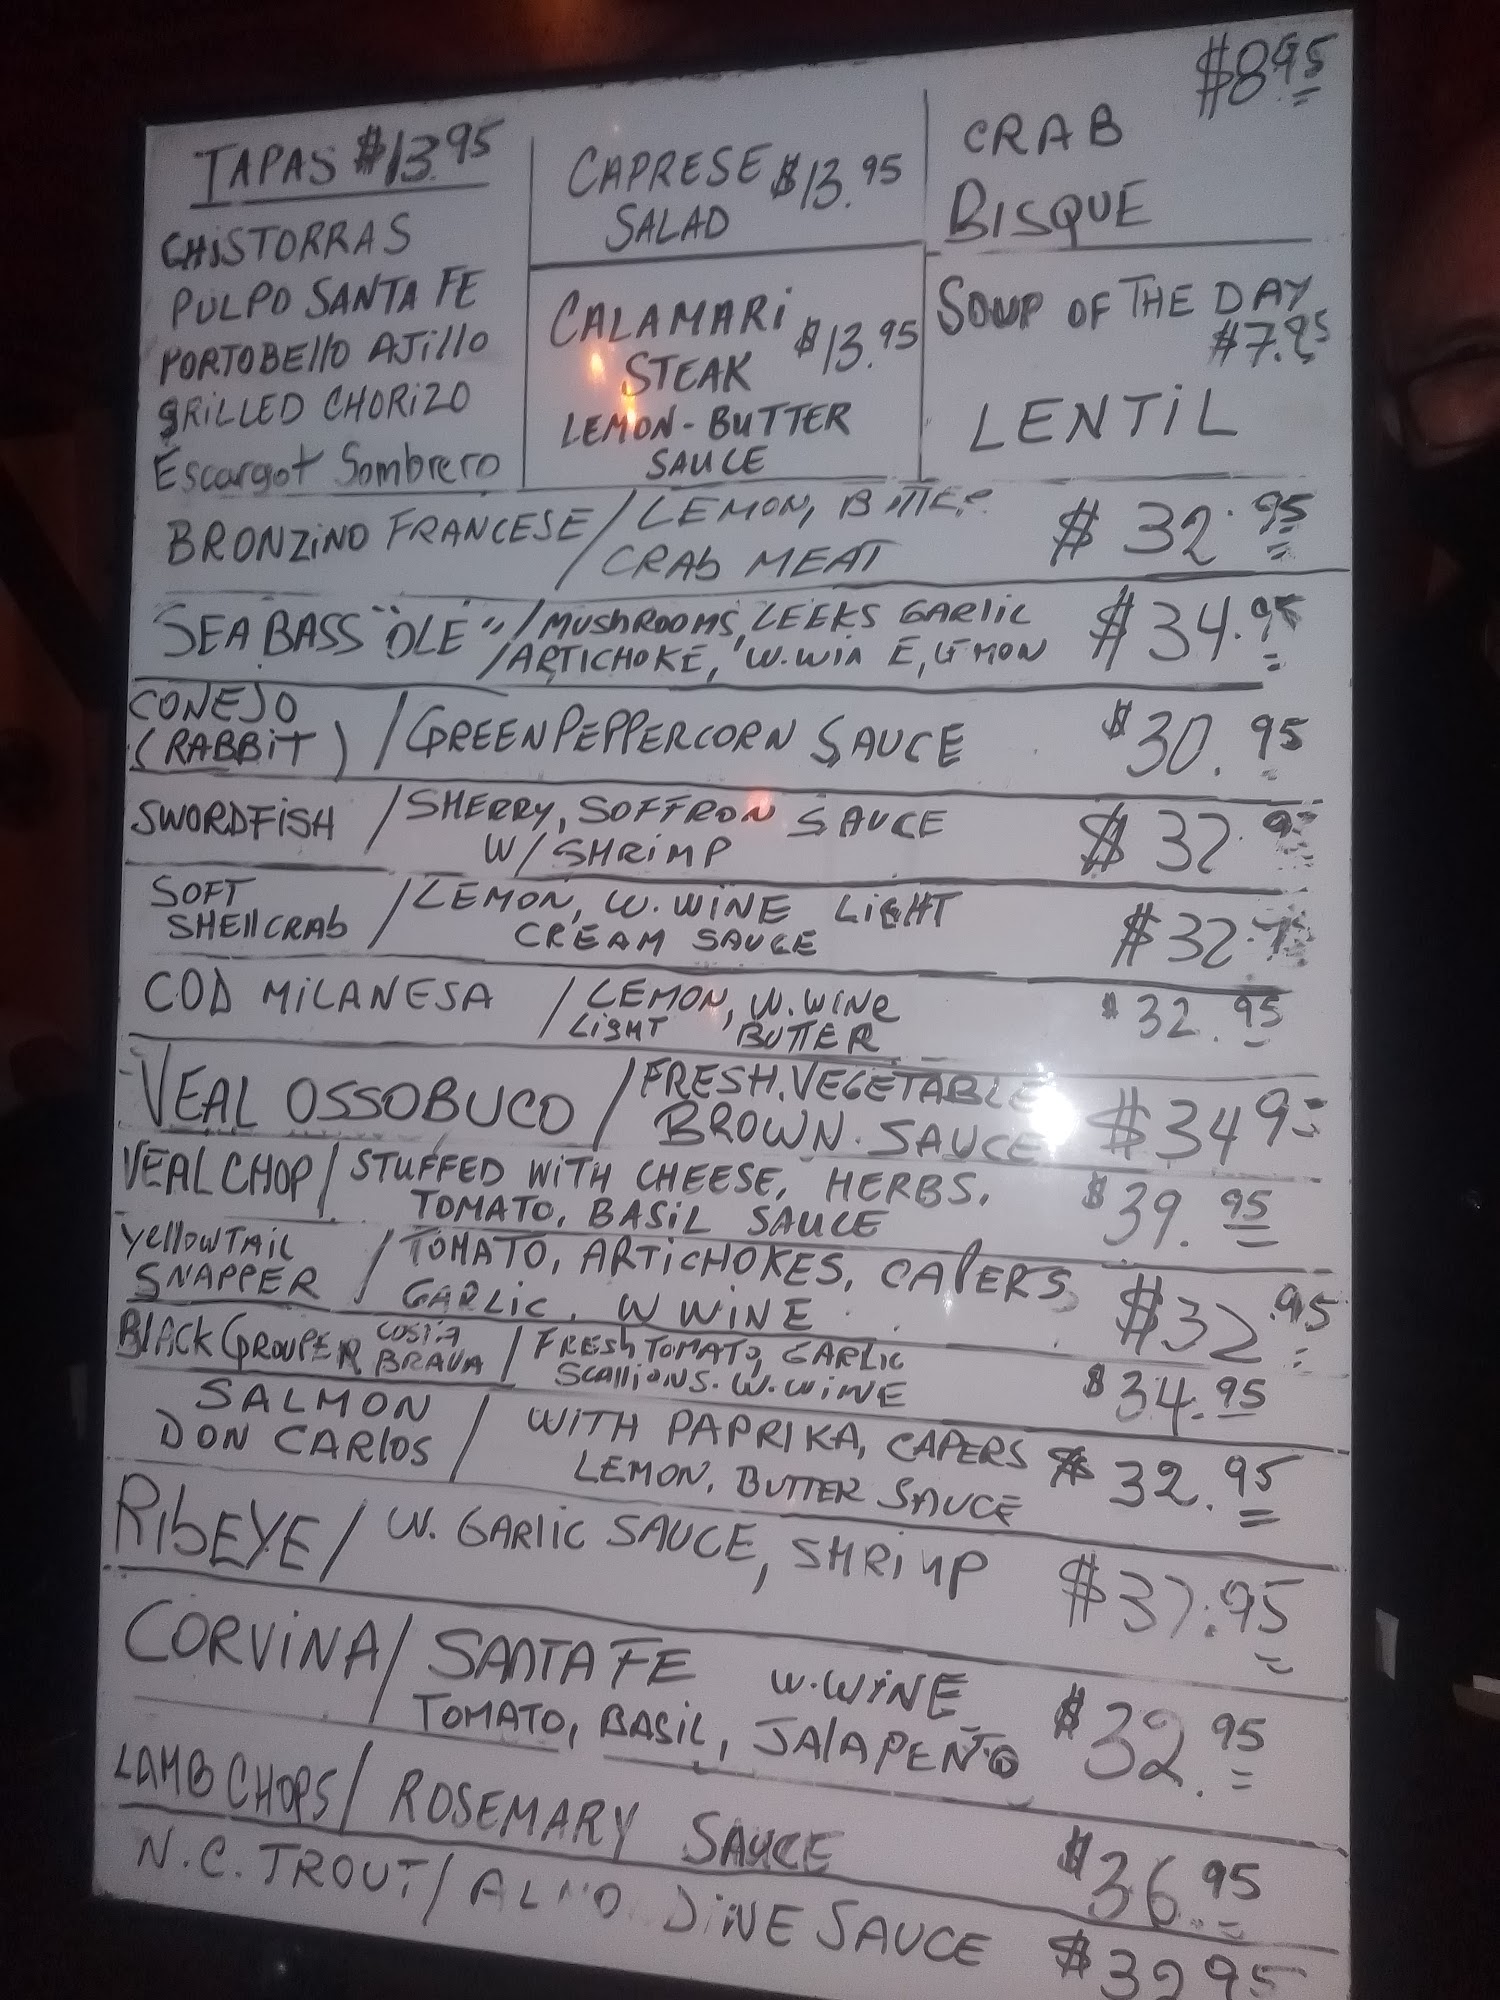 TAPAS $13.95
CHiSTORRAS
PULPO SANTA FE
PORTOBEllO AJillO
GRiLLED CHORiZO
Escargot Sombrero
CAPRESE $13.95
SALAD
CALAMARi
STEAK $13.95
LEMON-BUTTER
SAUCE
$8.95
CRAB
BISQUE
SOUP OF THE DAY
$7.95
LENTiL
BRONZiNO FRANCESE / LEMON, BUTTER
CRAb MEAT $32.95
SEA BASS "OLE" / MUShROOMS, LEEKS GARlic
ARTICHOKE, W.WiN E, LEMON $34.95
CONEJO
(RABBiT) / GREEN PEPPERCORN SAUCE $30.95
SWORDFiSH / SHERRY, SOFFRON SAUCE
W/ SHRiMP $32.95
SOFT
SHEllCRAb / LEMON, W.WiNE LiGHT
CREAM SAUCE $32.
COD MiLANESA / LEMON, W.WiNe
LiGHT BUTTER $32.95
VEAL OSSOBUCO / FRESH.VEGETABLE
BROWN.SAUCE $34.95
VEAL CHOP / STUFFED WiTH CHEESE, HERBS,
TOMATO, BASiL SAUCE $39.95
YellOWTAiL
SNAPPER / TOMATO, ARTiCHOKES, CAPERS
GARLic, W WiNE $32.95
BlACK GROUPER COSTA
BRAVA / FRESh TOMATO, GARLic
ScAlliONS. W.WiNE $34.95
SALMON
DON CARlOS / WiTH PAPRIKA, CAPERS
LEMON, BUTTER SAUCE $32.95
RibEYE / W. GARlic SAUCE, SHRiMP $37.95
CORViNA / SANTA FE W.WiNE
TOMATO, BASiL, JAlAPEÑO $32.95
LAMB CHOPS / ROSEMARY SAUCE $36.95
N.C. TROUT / DiNE SAUCE $32.95